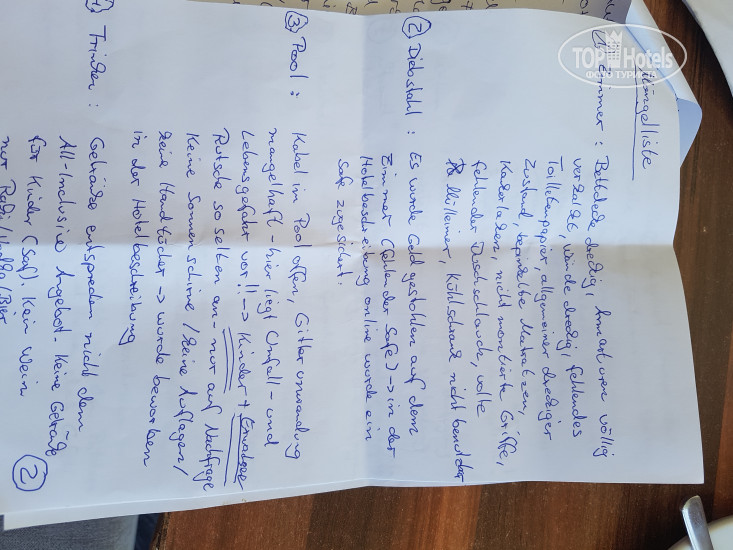 Mängelliste
Zimmer : Bettdecke dreckig, Armaturen völlig
verkalkt, Wände dreckig, fehlendes
Toilettenpapier, allgemeiner dreckiger
Zustand, Matratzen,
Kakerlaken, nicht montierte Griffe,
fehlender Duschschlauch, volle
Mülleimer, Kühlschrank nicht benutzbar
② Diebstahl : Es wurde Geld gestohlen auf dem
Zimmer (fehlender Safe) → in der
Hotelbeschreibung online wurde ein
Safe zugesichert.
③ Pool : Kabel in Pool offen, Gitterumrandung
mangelhaft - hier liegt Unfall- und
Lebensgefahr vor!! → Kinder +
Rutsche so selten an - nur auf Nachfrage
Keine Sonnenschirme / keine Auflagen /
keine Handtücher → wurde beworben
in der Hotelbeschreibung
Trinken : Getränke entsprechen nicht dem
All-Inclusive Angebot. Keine Getränke
für Kinder (Saft). Kein Wein
nur Raki / Wodka / Bier
②
TOP Hotels
ФОТО ТУРИСТА